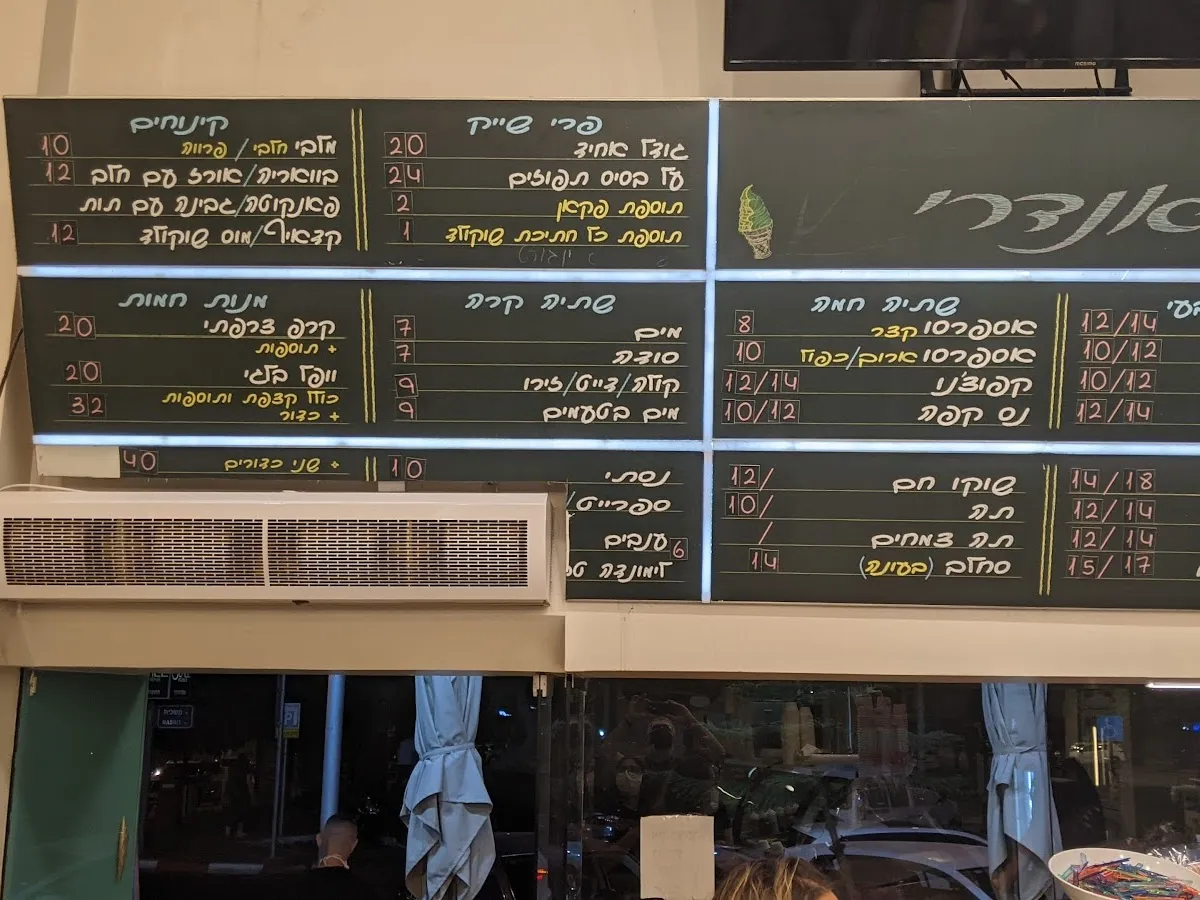 קינוחים
מלבי חלבי / פרווה 10
בוואריה/אורז עם חלב 12
פאנקוטה/גבינה עם תות
קדאיף/מוס שוקולד 12
פרי שייק
גודל אחיד 20
על בסיס תפוזים 24
תוספת פקאן 2
תוספת כל חתיכת שוקולד 1
מנות חמות
קרפ צרפתי 20
+ תוספות
וופל בלגי 20
כולל קצפת ותוספות 32
+ כדור
+ שני כדורים 40
שתיה קרה
מים 7
סודה 7
קולה/דייט/זירו 9
מים בטעמים 9
נסתי 10
ספרייט/
ענבים 6
לימונדה
שתיה חמה
אספרסו קצר 8
אספרסו ארוך/כפול 10
קפוצ'נו 12/14
נס קפה 10/12
שוקו חם 12/
תה 10/
תה צמחים /
סחלב (בעינה) 14
12/14
10/12
10/12
12/14
14/18
12/14
12/14
15/17